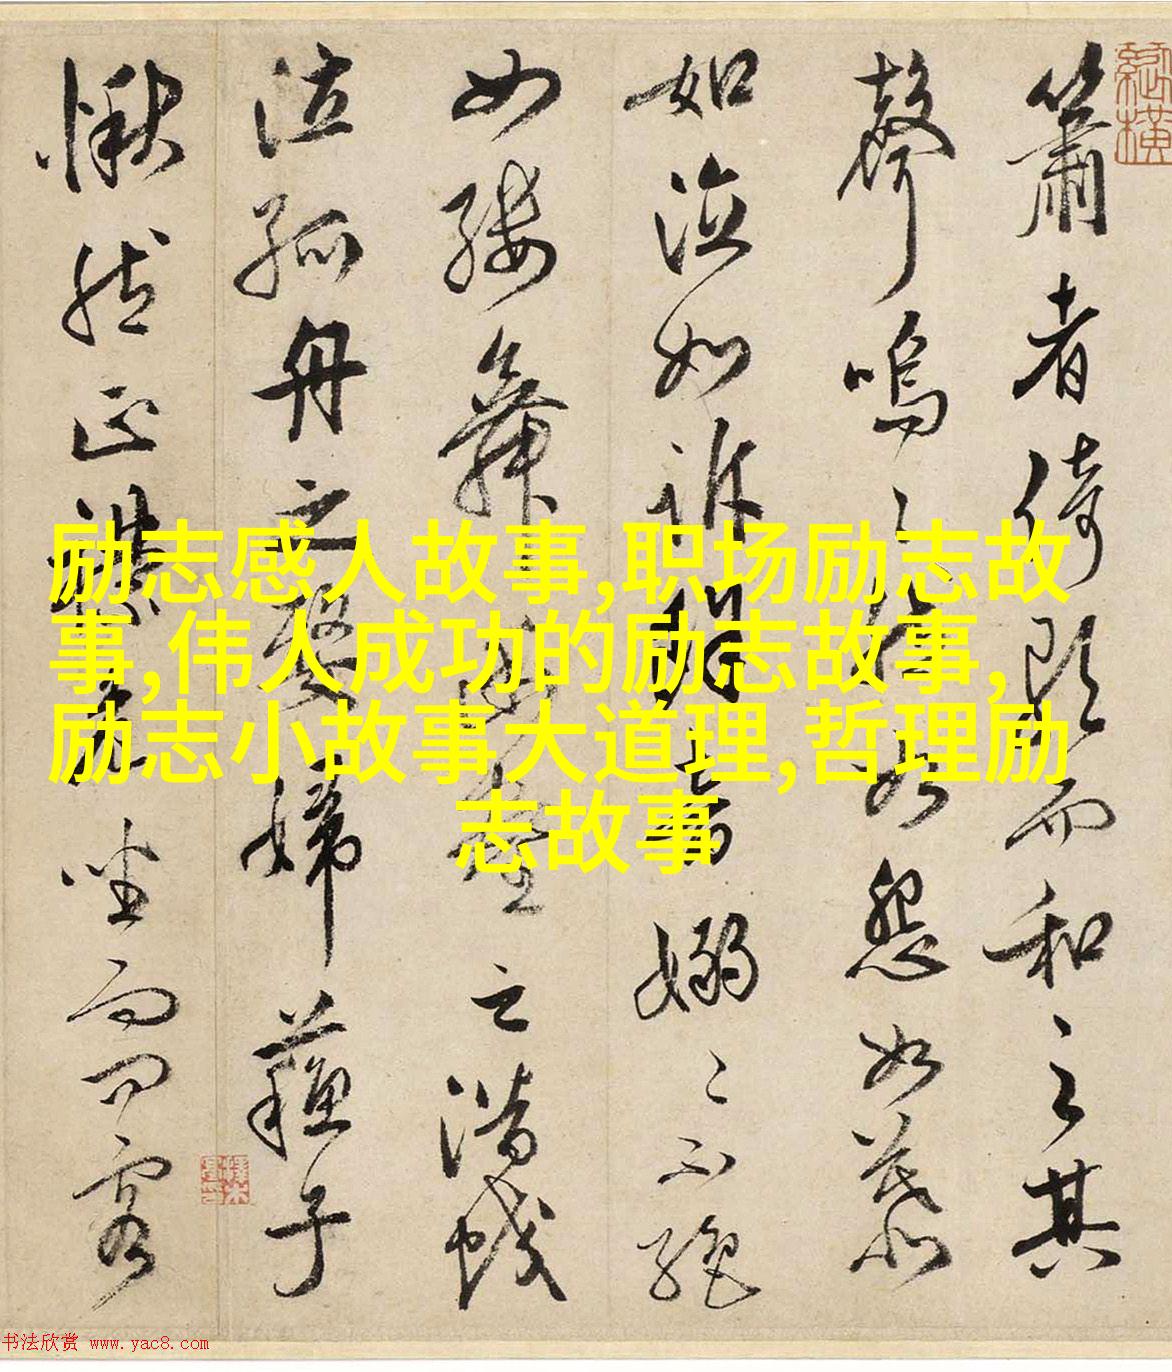 簫者倚歌而和之其
聲嗚〻然如怨如慕
如泣如訴餘音嫋〻不絕
如縷舞幽壑之潛蛟
泣孤舟之嫠婦蘇子
愀然正襟危坐而問客
励志感人故事,职场励志故
事,伟人成功的励志故事,
励志小故事大道理,哲理励
志故事
书法欣赏 www.yac8.com